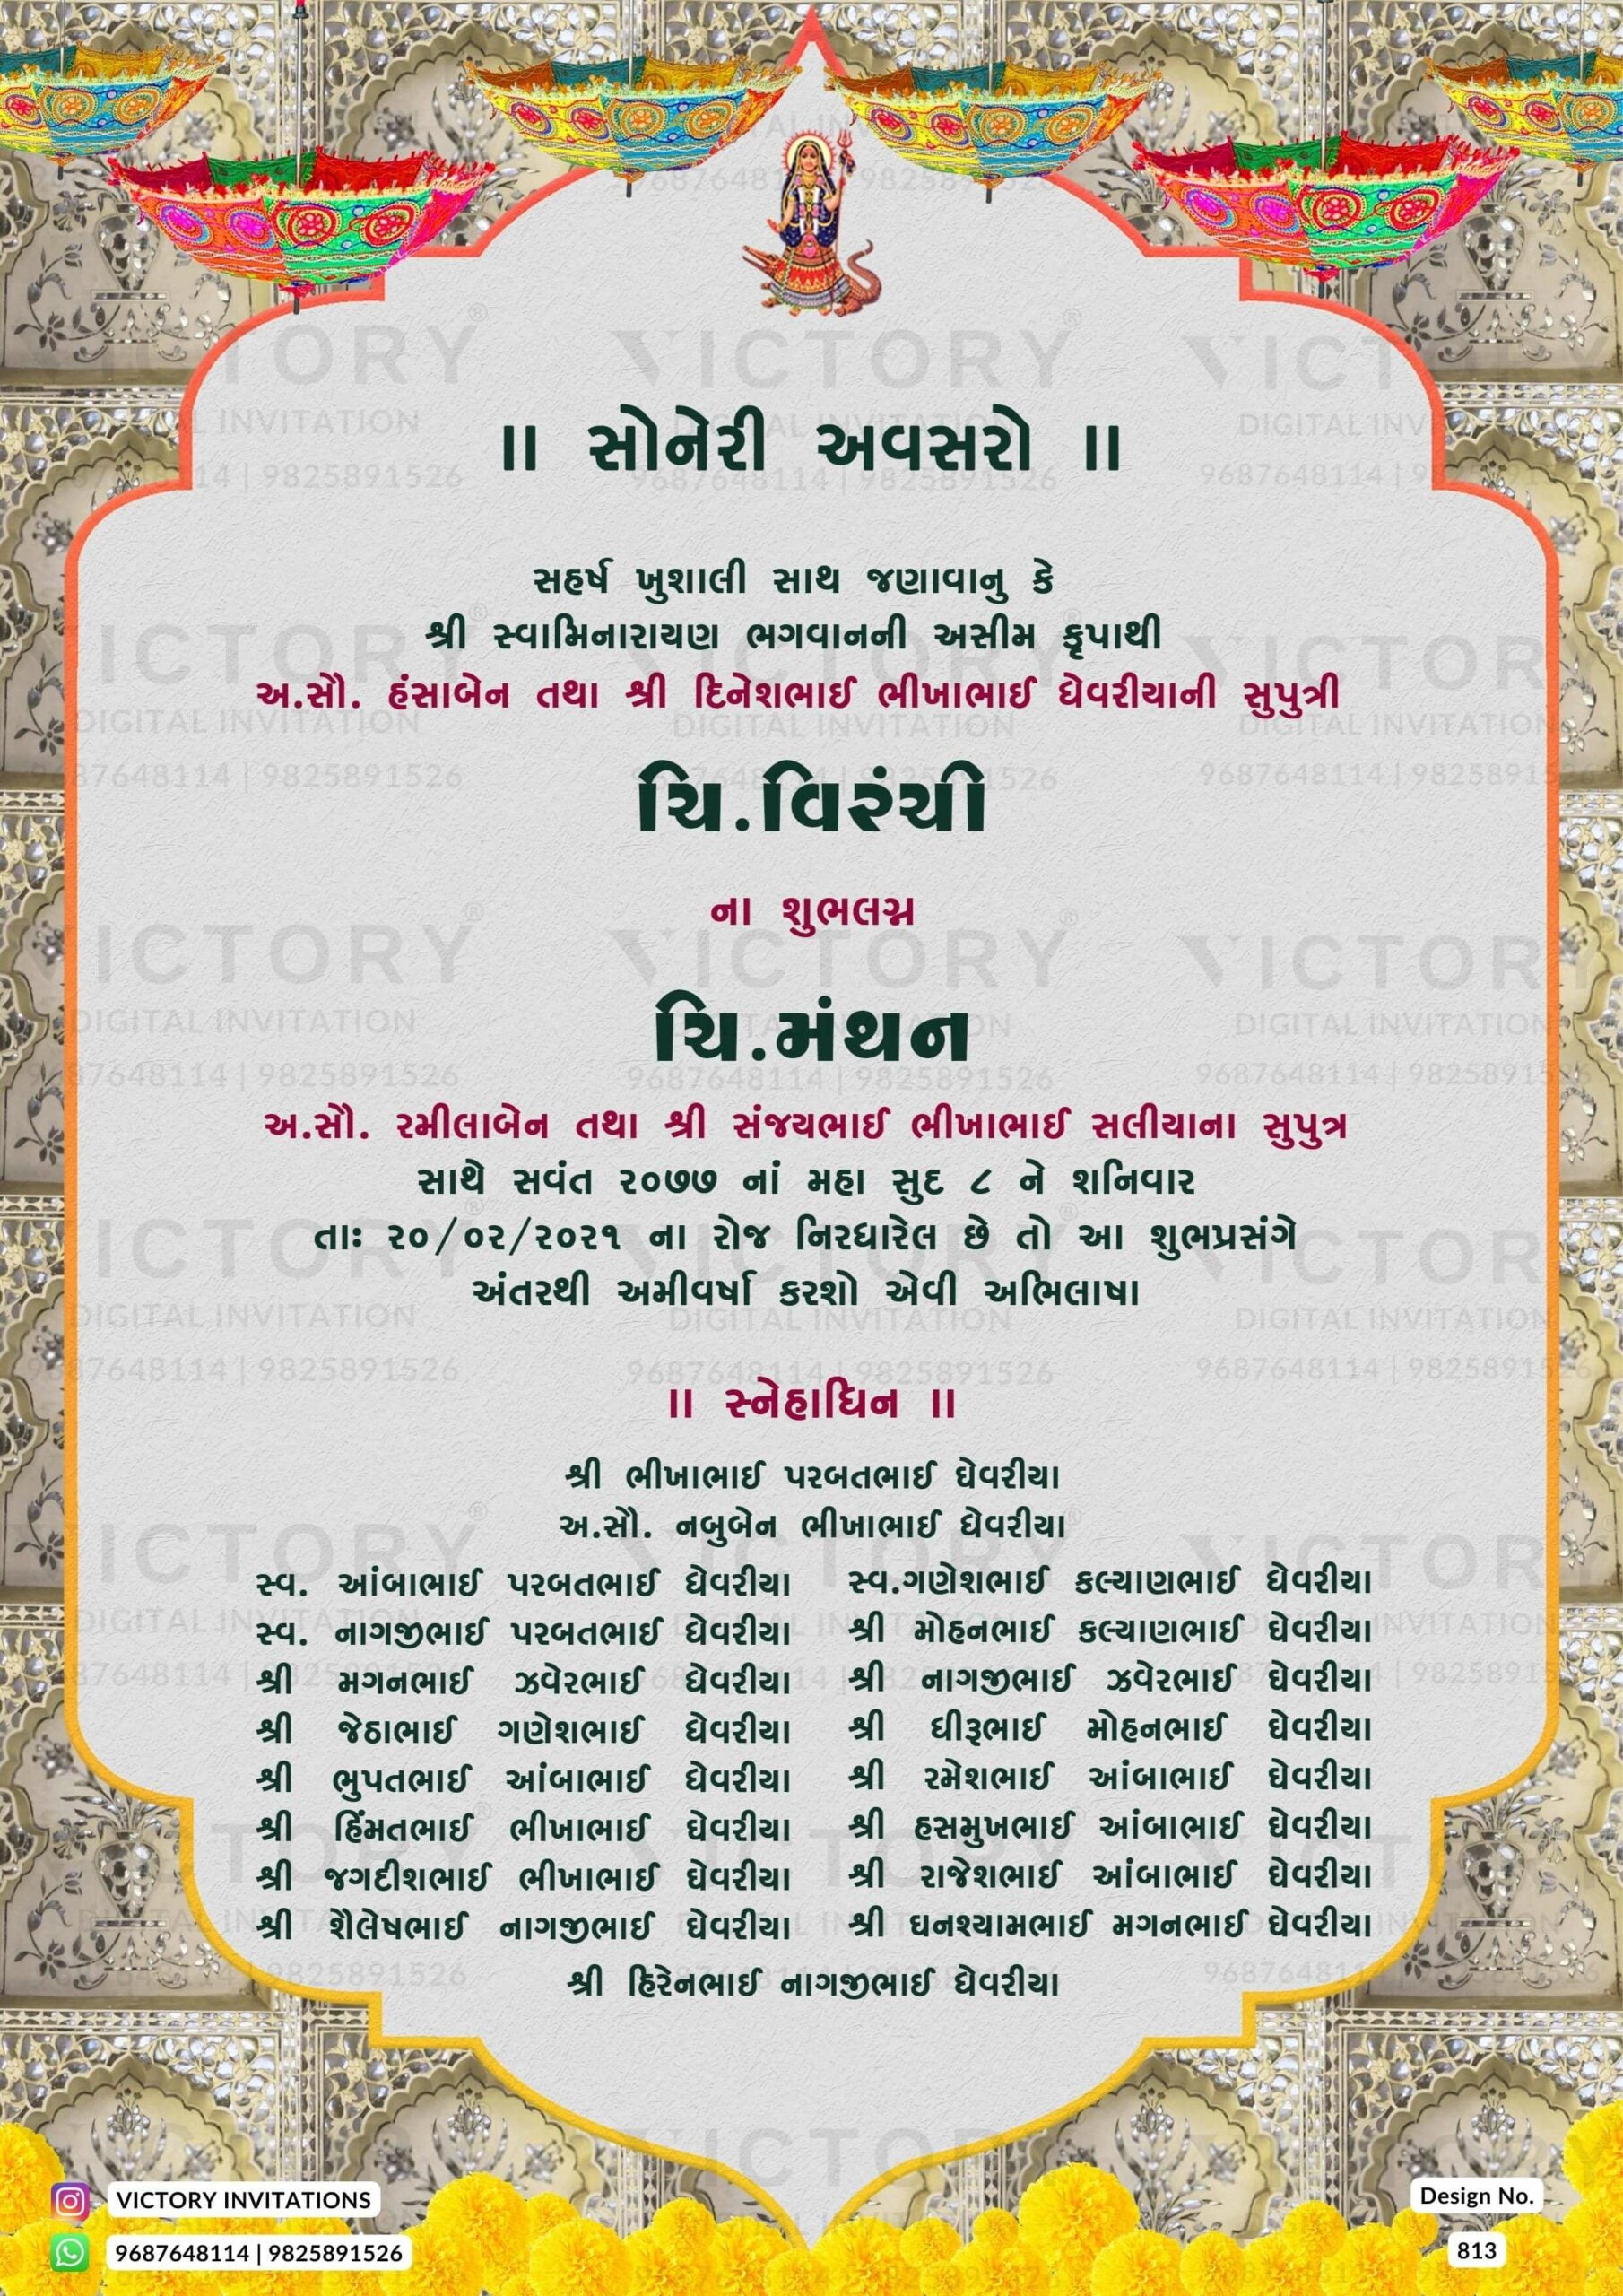 ॥ સોનેરી અવસરો ॥
સહર્ષ ખુશાલી સાથ જણાવાનુ કે
શ્રી સ્વામિનારાયણ ભગવાનની અસીમ કૃપાથી
અ.સૌ. હંસાબેન તથા શ્રી દિનેશભાઈ ભીખાભાઈ ઘેવરીયાની સુપુત્રી
ચિ.વિરંચી
ના શુભલગ્ન
ચિ.મંથન
અ.સૌ. રમીલાબેન તથા શ્રી સંજયભાઈ ભીખાભાઈ સલીયાના સુપુત્ર
સાથે સવંત ૨૦૭૭ નાં મહા સુદ ૮ ને શનિવાર
તાઃ ૨૦/૦૨/૨૦૨૧ ના રોજ નિરધારેલ છે તો આ શુભપ્રસંગે
અંતરથી અમીવર્ષા કરશો એવી અભિલાષા
॥ સ્નેહાધિન ॥
શ્રી ભીખાભાઈ પરબતભાઈ ઘેવરીયા
અ.સૌ. નબુબેન ભીખાભાઈ ઘેવરીયા
સ્વ. આંબાભાઈ પરબતભાઈ ઘેવરીયા સ્વ.ગણેશભાઈ કલ્યાણભાઈ ઘેવરીયા
સ્વ. નાગજીભાઈ પરબતભાઈ ઘેવરીયા શ્રી મોહનભાઈ કલ્યાણભાઈ ઘેવરીયા
શ્રી મગનભાઈ ઝવેરભાઈ ઘેવરીયા શ્રી નાગજીભાઈ ઝવેરભાઈ ઘેવરીયા
શ્રી જેઠાભાઈ ગણેશભાઈ ઘેવરીયા શ્રી ધીરૂભાઈ મોહનભાઈ ઘેવરીયા
શ્રી ભુપતભાઈ આંબાભાઈ ઘેવરીયા શ્રી રમેશભાઈ આંબાભાઈ ઘેવરીયા
શ્રી હિંમતભાઈ ભીખાભાઈ ઘેવરીયા શ્રી હસમુખભાઈ આંબાભાઈ ઘેવરીયા
શ્રી જગદીશભાઈ ભીખાભાઈ ઘેવરીયા શ્રી રાજેશભાઈ આંબાભાઈ ઘેવરીયા
શ્રી શૈલેષભાઈ નાગજીભાઈ ઘેવરીયા શ્રી ઘનશ્યામભાઈ મગનભાઈ ઘેવરીયા
શ્રી હિરેનભાઈ નાગજીભાઈ ઘેવરીયા
VICTORY INVITATIONS
9687648114 | 9825891526
Design No.
813
VICTORY
DIGITAL INVITATION
9687648114 | 9825891526